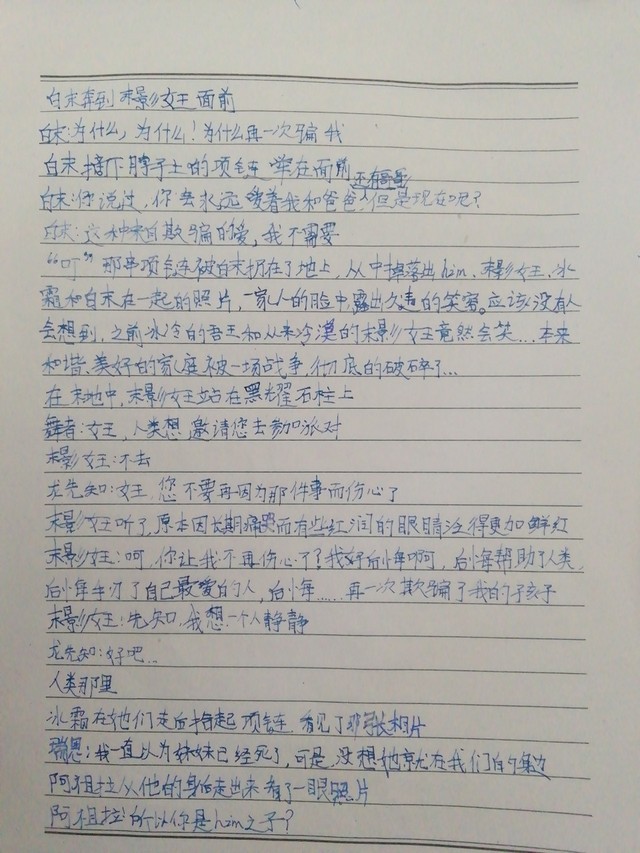 白末奔到末影女王面前
白末:为什么,为什么!为什么再一次骗我
白末摘下脖子上的项链 举在面前
还有哥哥
白末:你说过,你会永远爱着我和爸爸,但是现在呢?
白末:这种来自欺骗的爱,我不需要
“叮”那串项链被白末扔在了地上,从中掉落出him、末影女王、冰
霜和白末在一起的照片,一家人的脸中露出久违的笑容。应该没有人
会想到,之前冰冷的君王和从来冷漠的末影女王竟然会笑...本来
和谐、美好的家庭被一场战争,彻底的破碎了...
在末地中,末影女王站在黑耀石柱上
舞者:女王,人类想邀请您去参加派对
末影女王:不去
龙先知:女王,您不要再因为那件事而伤心了
末影女王听了,原本因长期痛哭而有些红润的眼睛泛得更加鲜红
末影女王:呵,你让我不再伤心了?我好后悔啊,后悔帮助了人类,
后悔牛了自己最爱的人,后悔......再一次欺骗了我的子孩子
末影女王:先知,我想一个人静静
龙先知:好吧...
人类那里
冰霜在他们走后捡起项链,看见了那张相片
瑞恩:我一直以为妹妹已经死了,可是,没想她就在我们的身边
阿祖拉从他的身后走出来看了一眼照片
阿祖拉:所以你是him之子?